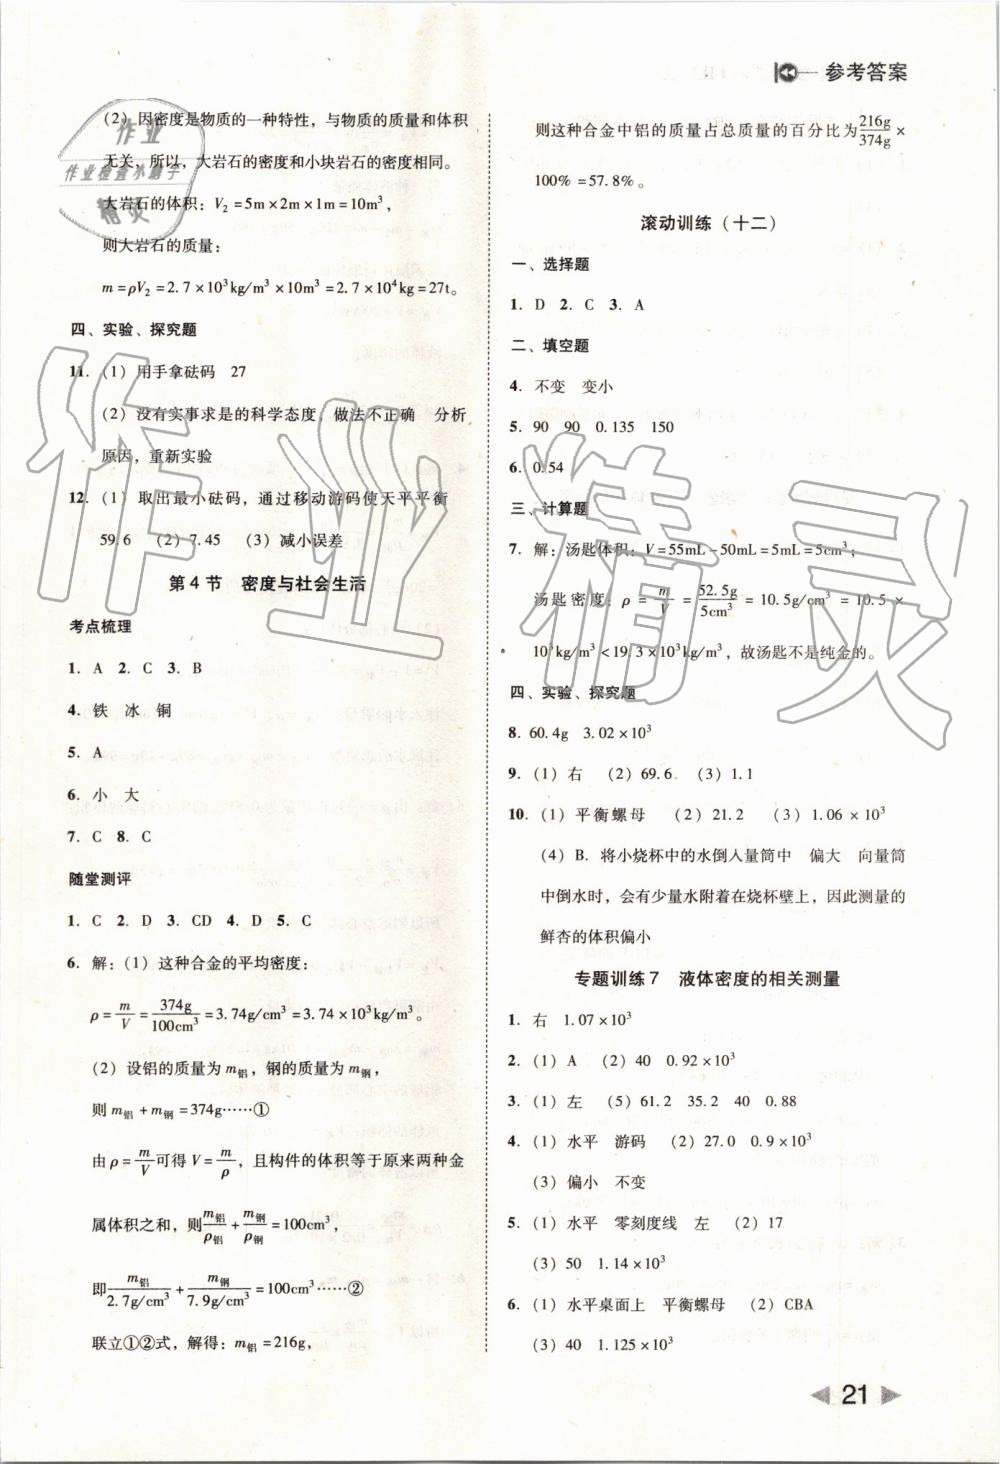 参考答案
(2) 因密度是物质的一种特性，与物质的质量和体积
无关，所以，大岩石的密度和小块岩石的密度相同。
大岩石的体积：V₂=5m×2m×1m=10m³，
则大岩石的质量：
m=ρV₂=2.7×10³kg/m³×10m³=2.7×10⁴kg=27t。
四、实验、探究题
11. (1) 用手拿砝码 27
(2) 没有实事求是的科学态度，做法不正确 分析
原因，重新实验
12. (1) 取出最小砝码，通过移动游码使天平平衡
59.6 (2) 7.45 (3) 减小误差
第4节 密度与社会生活
考点梳理
1. A 2. C 3. B
4. 铁 冰 铜
5. A
6. 小 大
7. C 8. C
随堂测评
1. C 2. D 3. CD 4. D 5. C
6. 解：(1) 这种合金的平均密度：
ρ=m/V=374g/100cm³=3.74g/cm³=3.74×10³kg/m³。
(2) 设铝的质量为m铝，钢的质量为m钢，
则m铝+m钢=374g……①
由ρ=m/V可得V=m/ρ，且构件的体积等于原来两种金
属体积之和，则m铝/ρ铝+m钢/ρ钢=100cm³，
即m铝/2.7g/cm³+m钢/7.9g/cm³=100cm³……②
联立①②式，解得：m铝=216g，
则这种合金中铝的质量占总质量的百分比为216g/374g×
100%=57.8%。
滚动训练（十二）
一、选择题
1. D 2. C 3. A
二、填空题
4. 不变 变小
5. 90 90 0.135 150
6. 0.54
三、计算题
7. 解：汤匙体积：V=55mL-50mL=5mL=5cm³；
汤匙密度：ρ=m/V=52.5g/5cm³=10.5g/cm³=10.5×
10³kg/m³<19.3×10³kg/m³，故汤匙不是纯金的。
四、实验、探究题
8. 60.4g 3.02×10³
9. (1) 右 (2) 69.6 (3) 1.1
10. (1) 平衡螺母 (2) 21.2 (3) 1.06×10³
(4) B. 将小烧杯中的水倒入量筒中 偏大 向量筒
中倒水时，会有少量水附着在烧杯壁上，因此测量的
鲜杏的体积偏小
专题训练7 液体密度的相关测量
1. 右 1.07×10³
2. (1) A (2) 40 0.92×10³
3. (1) 左 (5) 61.2 35.2 40 0.88
4. (1) 水平 游码 (2) 27.0 0.9×10³
(3) 偏小 不变
5. (1) 水平 零刻度线 左 (2) 17
(3) 50 1.14×10³
6. (1) 水平桌面上 平衡螺母 (2) CBA
(3) 40 1.125×10³
21
作业
作业检查小助手
精灵
作业精灵